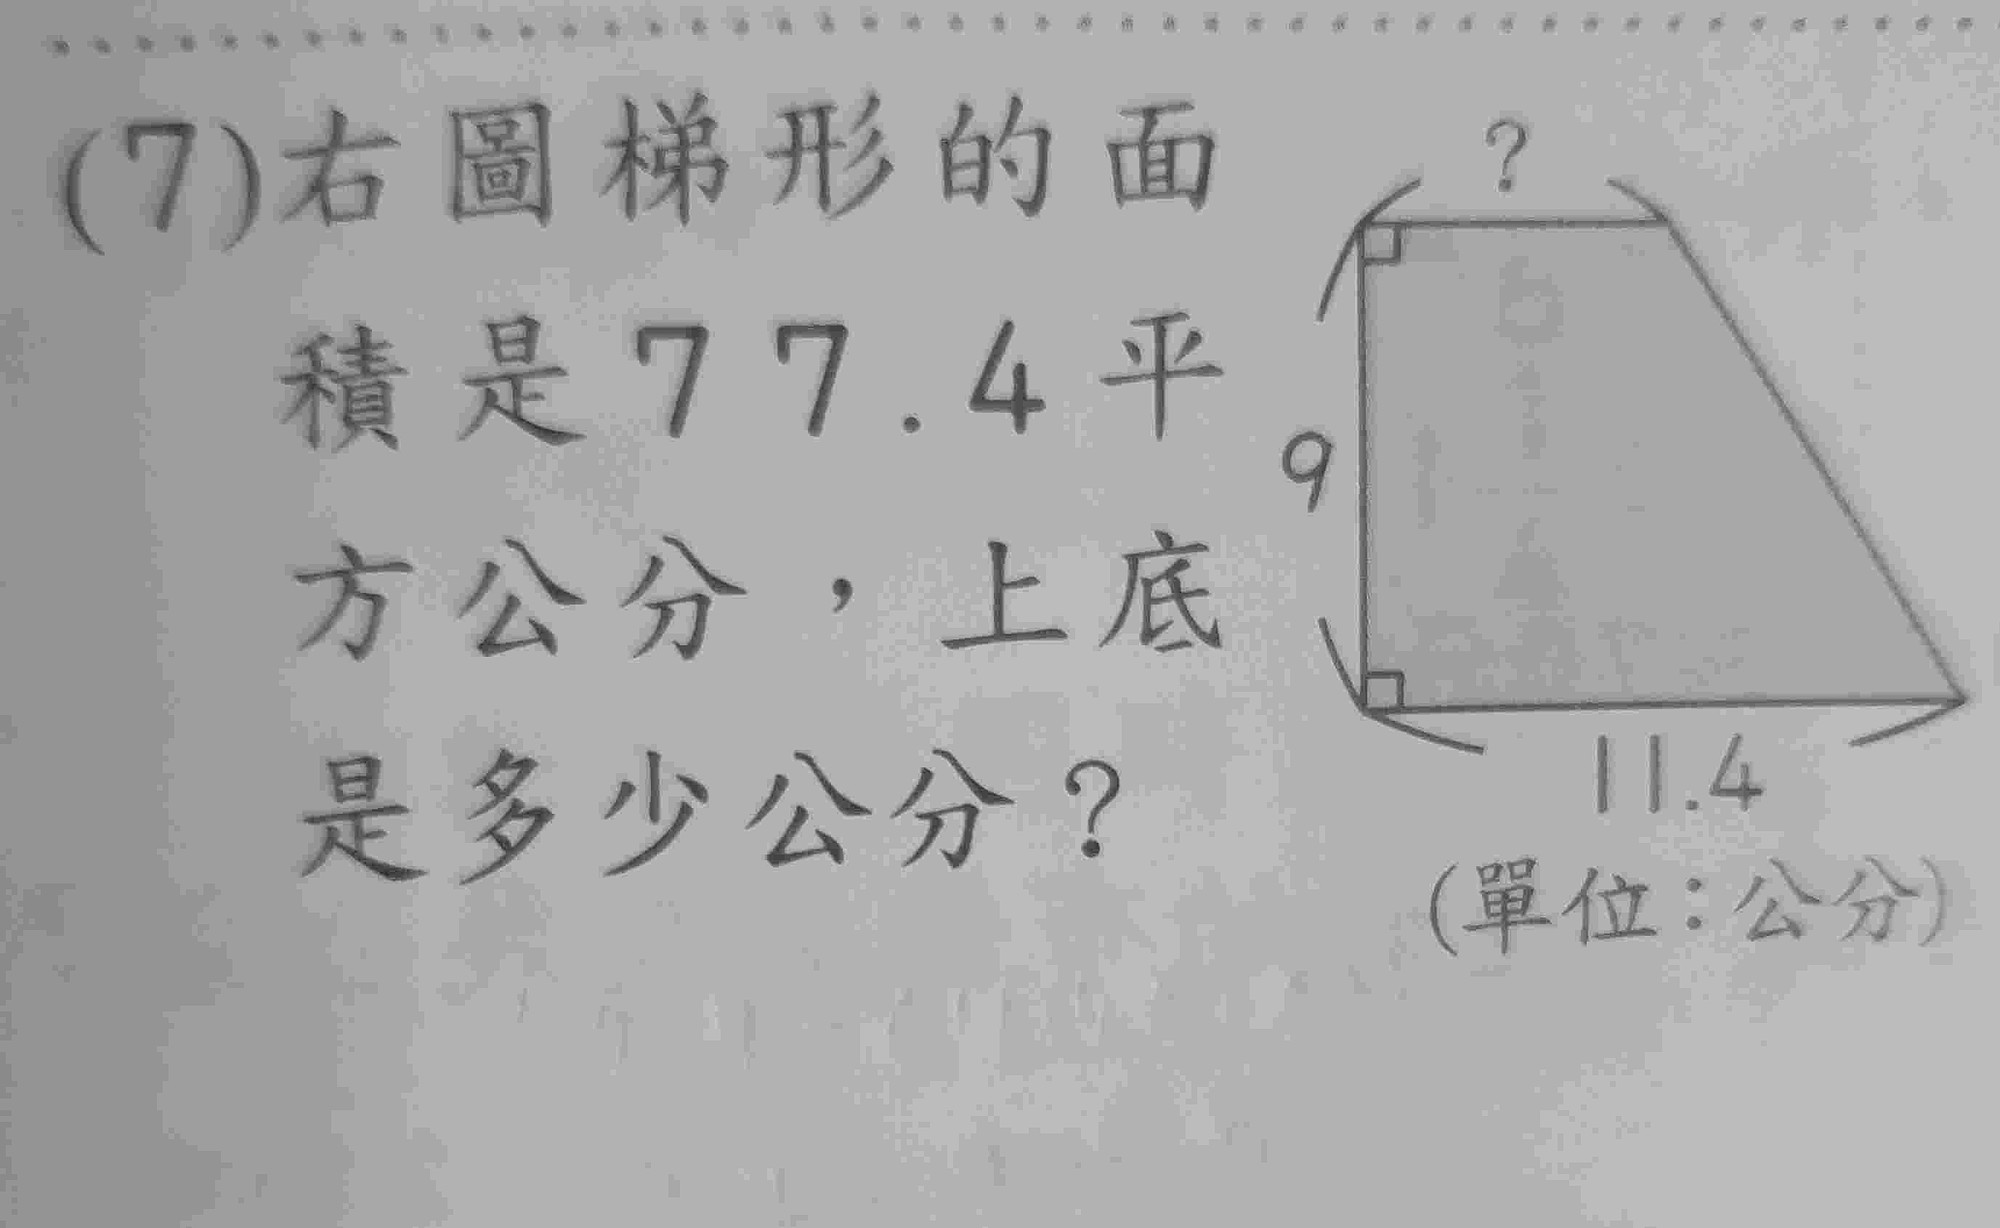 (7)右圖梯形的面
積是77.4平
方公分，上底
是多少公分？
?
9
11.4
(單位：公分)